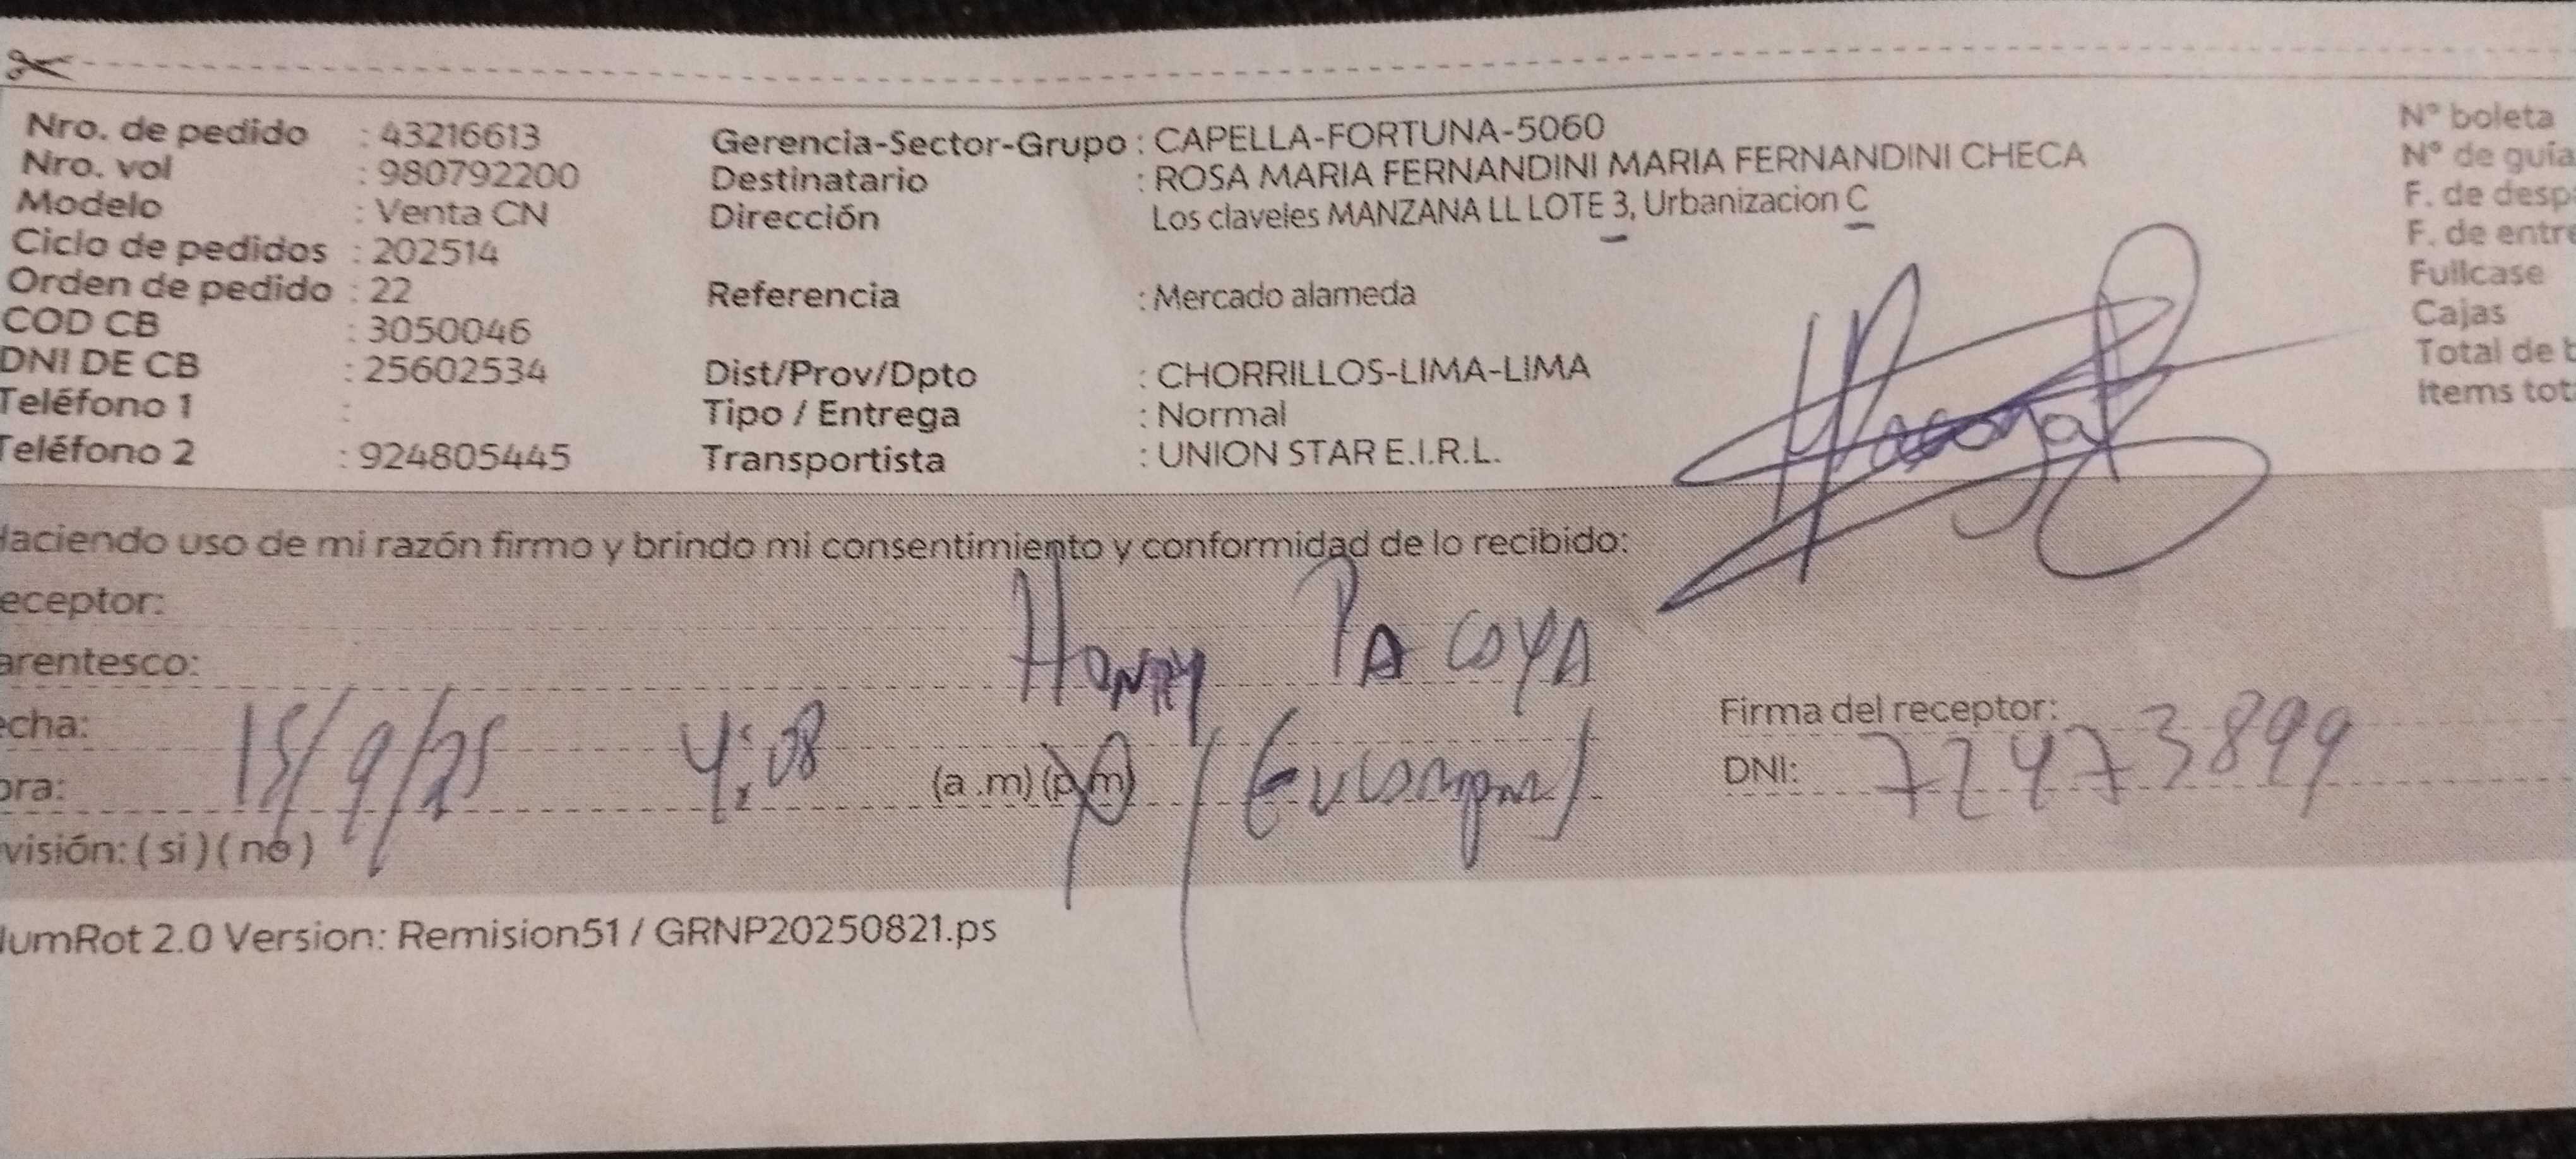 Nro. de pedido : 43216613
Nro. vol : 980792200
Modelo : Venta CN
Ciclo de pedidos : 202514
Orden de pedido : 22
COD CB : 3050046
DNI DE CB : 25602534
Teléfono 1 :
Teléfono 2 : 924805445
Gerencia-Sector-Grupo : CAPELLA-FORTUNA-5060
Destinatario : ROSA MARIA FERNANDINI MARIA FERNANDINI CHECA
Dirección Los claveles MANZANA LL LOTE 3, Urbanizacion C
Referencia : Mercado alameda
Dist/Prov/Dpto : CHORRILLOS-LIMA-LIMA
Tipo / Entrega : Normal
Transportista : UNION STAR E.I.R.L.
N° boleta
N° de guía
F. de desp
F. de entre
Fullcase
Cajas
Total de b
Items tot
Haciendo uso de mi razón firmo y brindo mi consentimiento y conformidad de lo recibido:
eceptor:
PACOYA
arentesco:
echa: 15/9/25 4:08
ora: (a .m) (p.m)
Firma del receptor:
DNI: 72473899
visión: ( si ) ( no )
NumRot 2.0 Version: Remision51 / GRNP20250821.ps